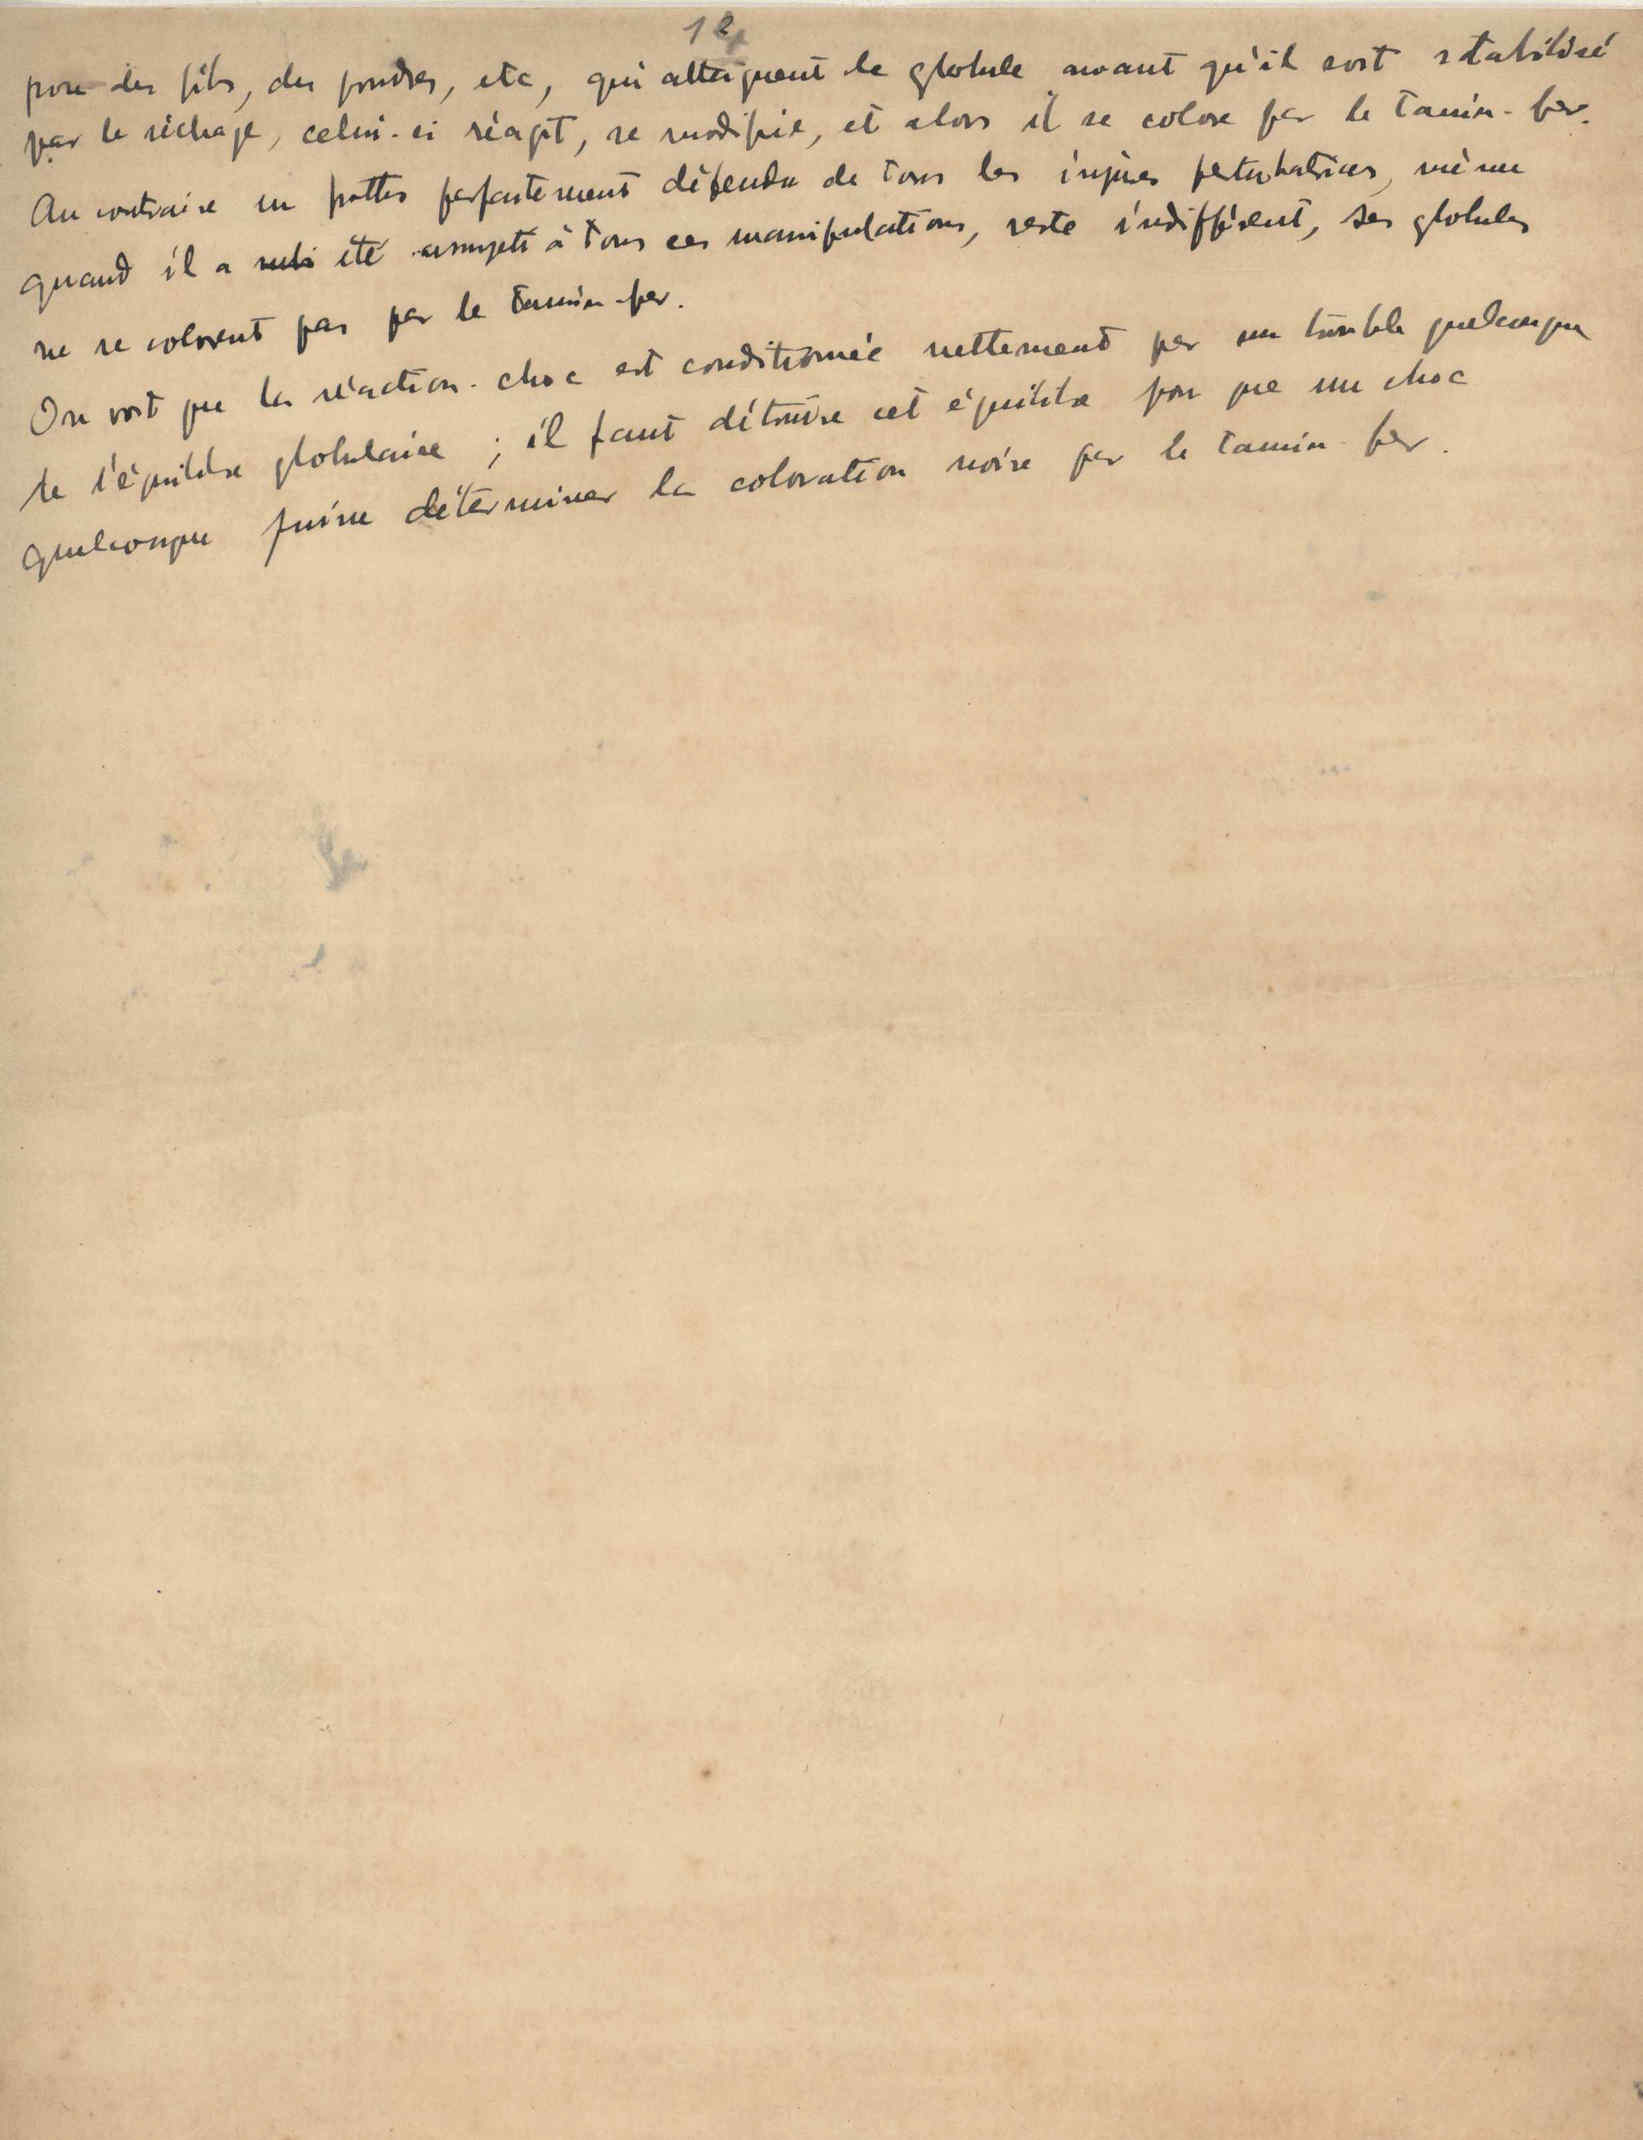 12
pose des fils, des poudres, etc, qui atteignent le globule avant qu'il soit stabilisé
par le séchage, celui-ci réagit, se modifie, et alors il se colore par le tanin-fer.
Au contraire un frottis parfaitement défendu de tous les injures perturbatrices, même
quand il a subi été assujeti à tous ces manipulations, reste indifférent, ses globules
ne se colorent pas par le tannin-fer.
On voit que la réaction-choc est conditionnée nettement par un trouble quelconque
de l'équilibre globulaire ; il faut détruire cet équilibre pour que un choc
quelconque puisse déterminer la coloration noire par le tanin-fer.